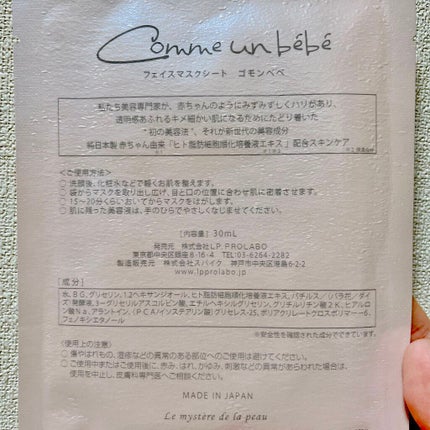 Comme un bébé
フェイスマスクシート　ゴモンベベ
私たち美容専門家が、赤ちゃんのようにみずみずしくハリがあり、
透明感あふれるキメ細かい肌になるためにたどり着いた
"初の美容法"、それが新世代の美容成分
純日本製 赤ちゃん由来「ヒト脂肪細胞順化培養液エキス」配合スキンケア
<ご使用方法>
○ 洗顔後、化粧水などで軽くお肌を整えます。
○ 袋からマスクを取り出し広げ、目と口の位置に合わせ肌に密着させます。
○ 15～20分くらいおいてからマスクをはがします。
○ 肌に残った美容液は、手のひらでやさしくなじませてください。
[内容量] 30mL
発売元　株式会社LP.PROLABO
東京都中央区銀座8-16-4　TEL.03-6264-2282
製造販売元　株式会社スパイク　神戸市中央区港島6-2-2
www.lpprolabo.jp
[成分]
水、BG、グリセリン、1,2ヘキサンジオール、ヒト脂肪細胞順化培養液エキス、バチルス/(バラ花/ダイ
ズ)発酵液、3-グリセリルアスコルビン酸、エチルヘキシルグリセリン、グリチルリチン酸2K、ヒアルロ
ン酸Na、アラントイン、(PCA/イソステアリン酸)グリセレス-25、ポリアクリレートクロスポリマー-6、
フェノキシエタノール
※安全性を確認した成分でできています。
<使用上の注意>
○ 傷やはれもの、湿疹などの異常のある部位へのご使用は避けてください。
○ ご使用中またはご使用後に、赤み、はれ、かゆみ、刺激などの異常があらわれた場合は、
使用を中止し、皮膚科専門医へご相談ください。
MADE IN JAPAN
Le mystère de la peau